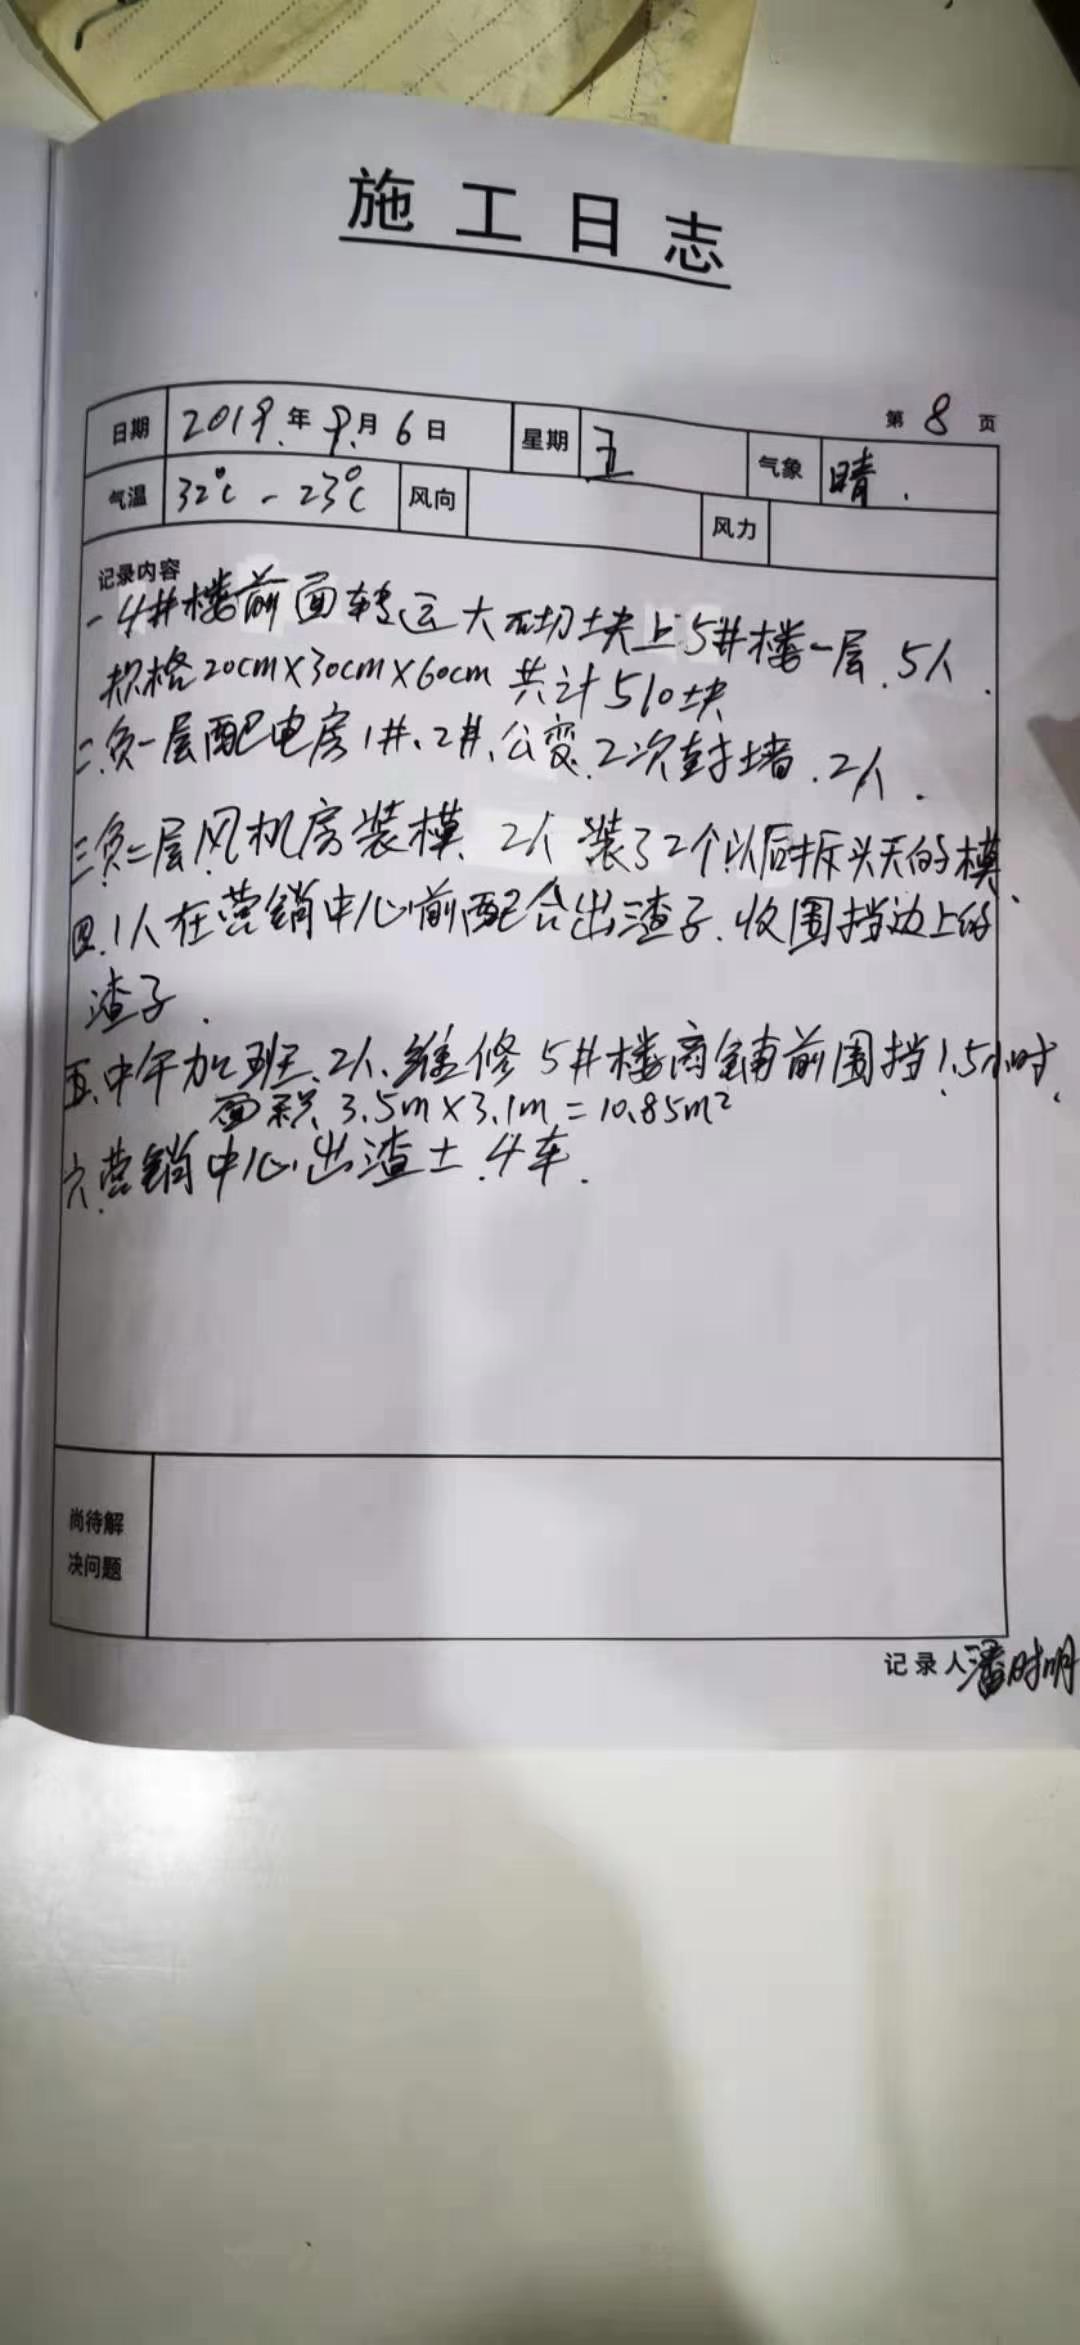 施工日志
第 8 页
日期 2019年9月6日 星期 五 气象 晴.
气温 32℃ - 23℃ 风向 风力
记录内容
一.4井楼前面转运大砌块上5井楼一层.5人.
规格20cm×30cm×60cm 共计510块
二.负一层配电房1井、2井、公变.2次封墙.2人.
三.负二层风机房装模.2人装了2个以后拆头天的模.
四.1人在营销中心前配合出渣子.收围挡边上的
渣子.
五.中午加班.2人.维修5井楼商铺前围挡1.5小时.
面积.3.5m×3.1m=10.85m²
六.营销中心出渣土.4车.
尚待解
决问题
记录人 潘时明